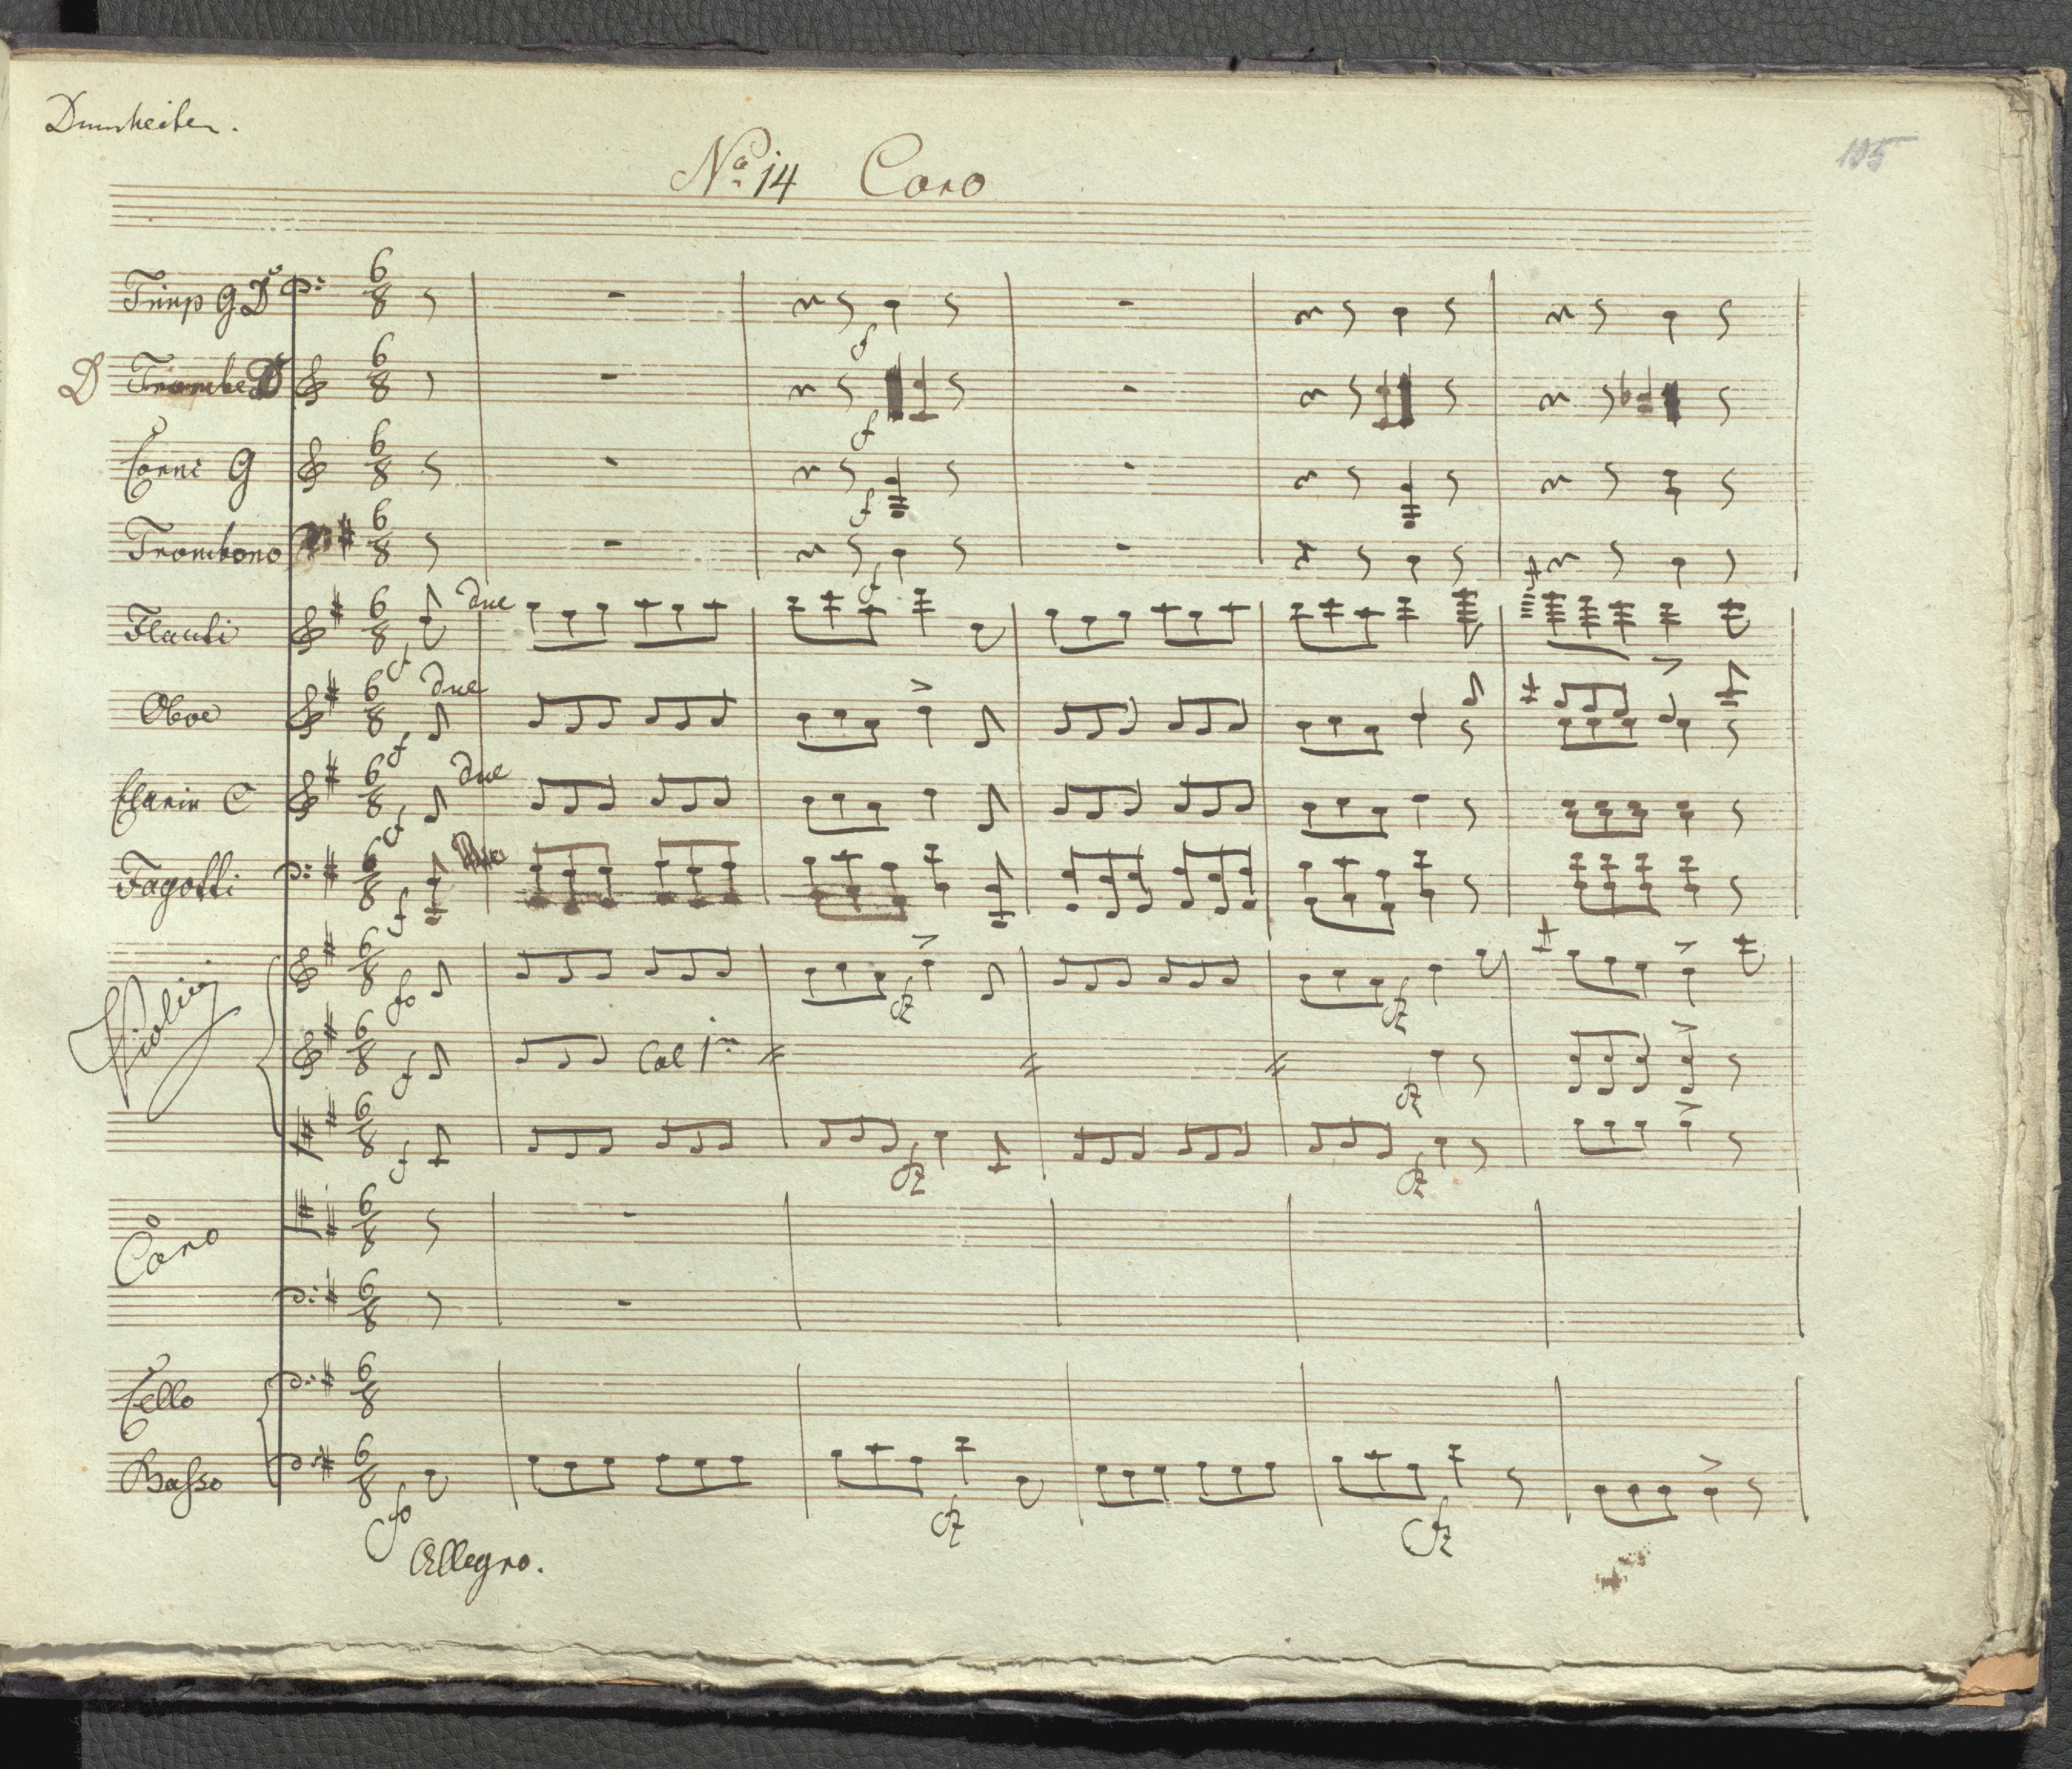 No 14 Coro
105
Timp G D
D Trombe D
Corni G
Trombono
Flauti
due
Oboe
due
Clarin C
due
Fagotti
Violini
Col 1mo
Coro
Cello
Basso
Allegro.